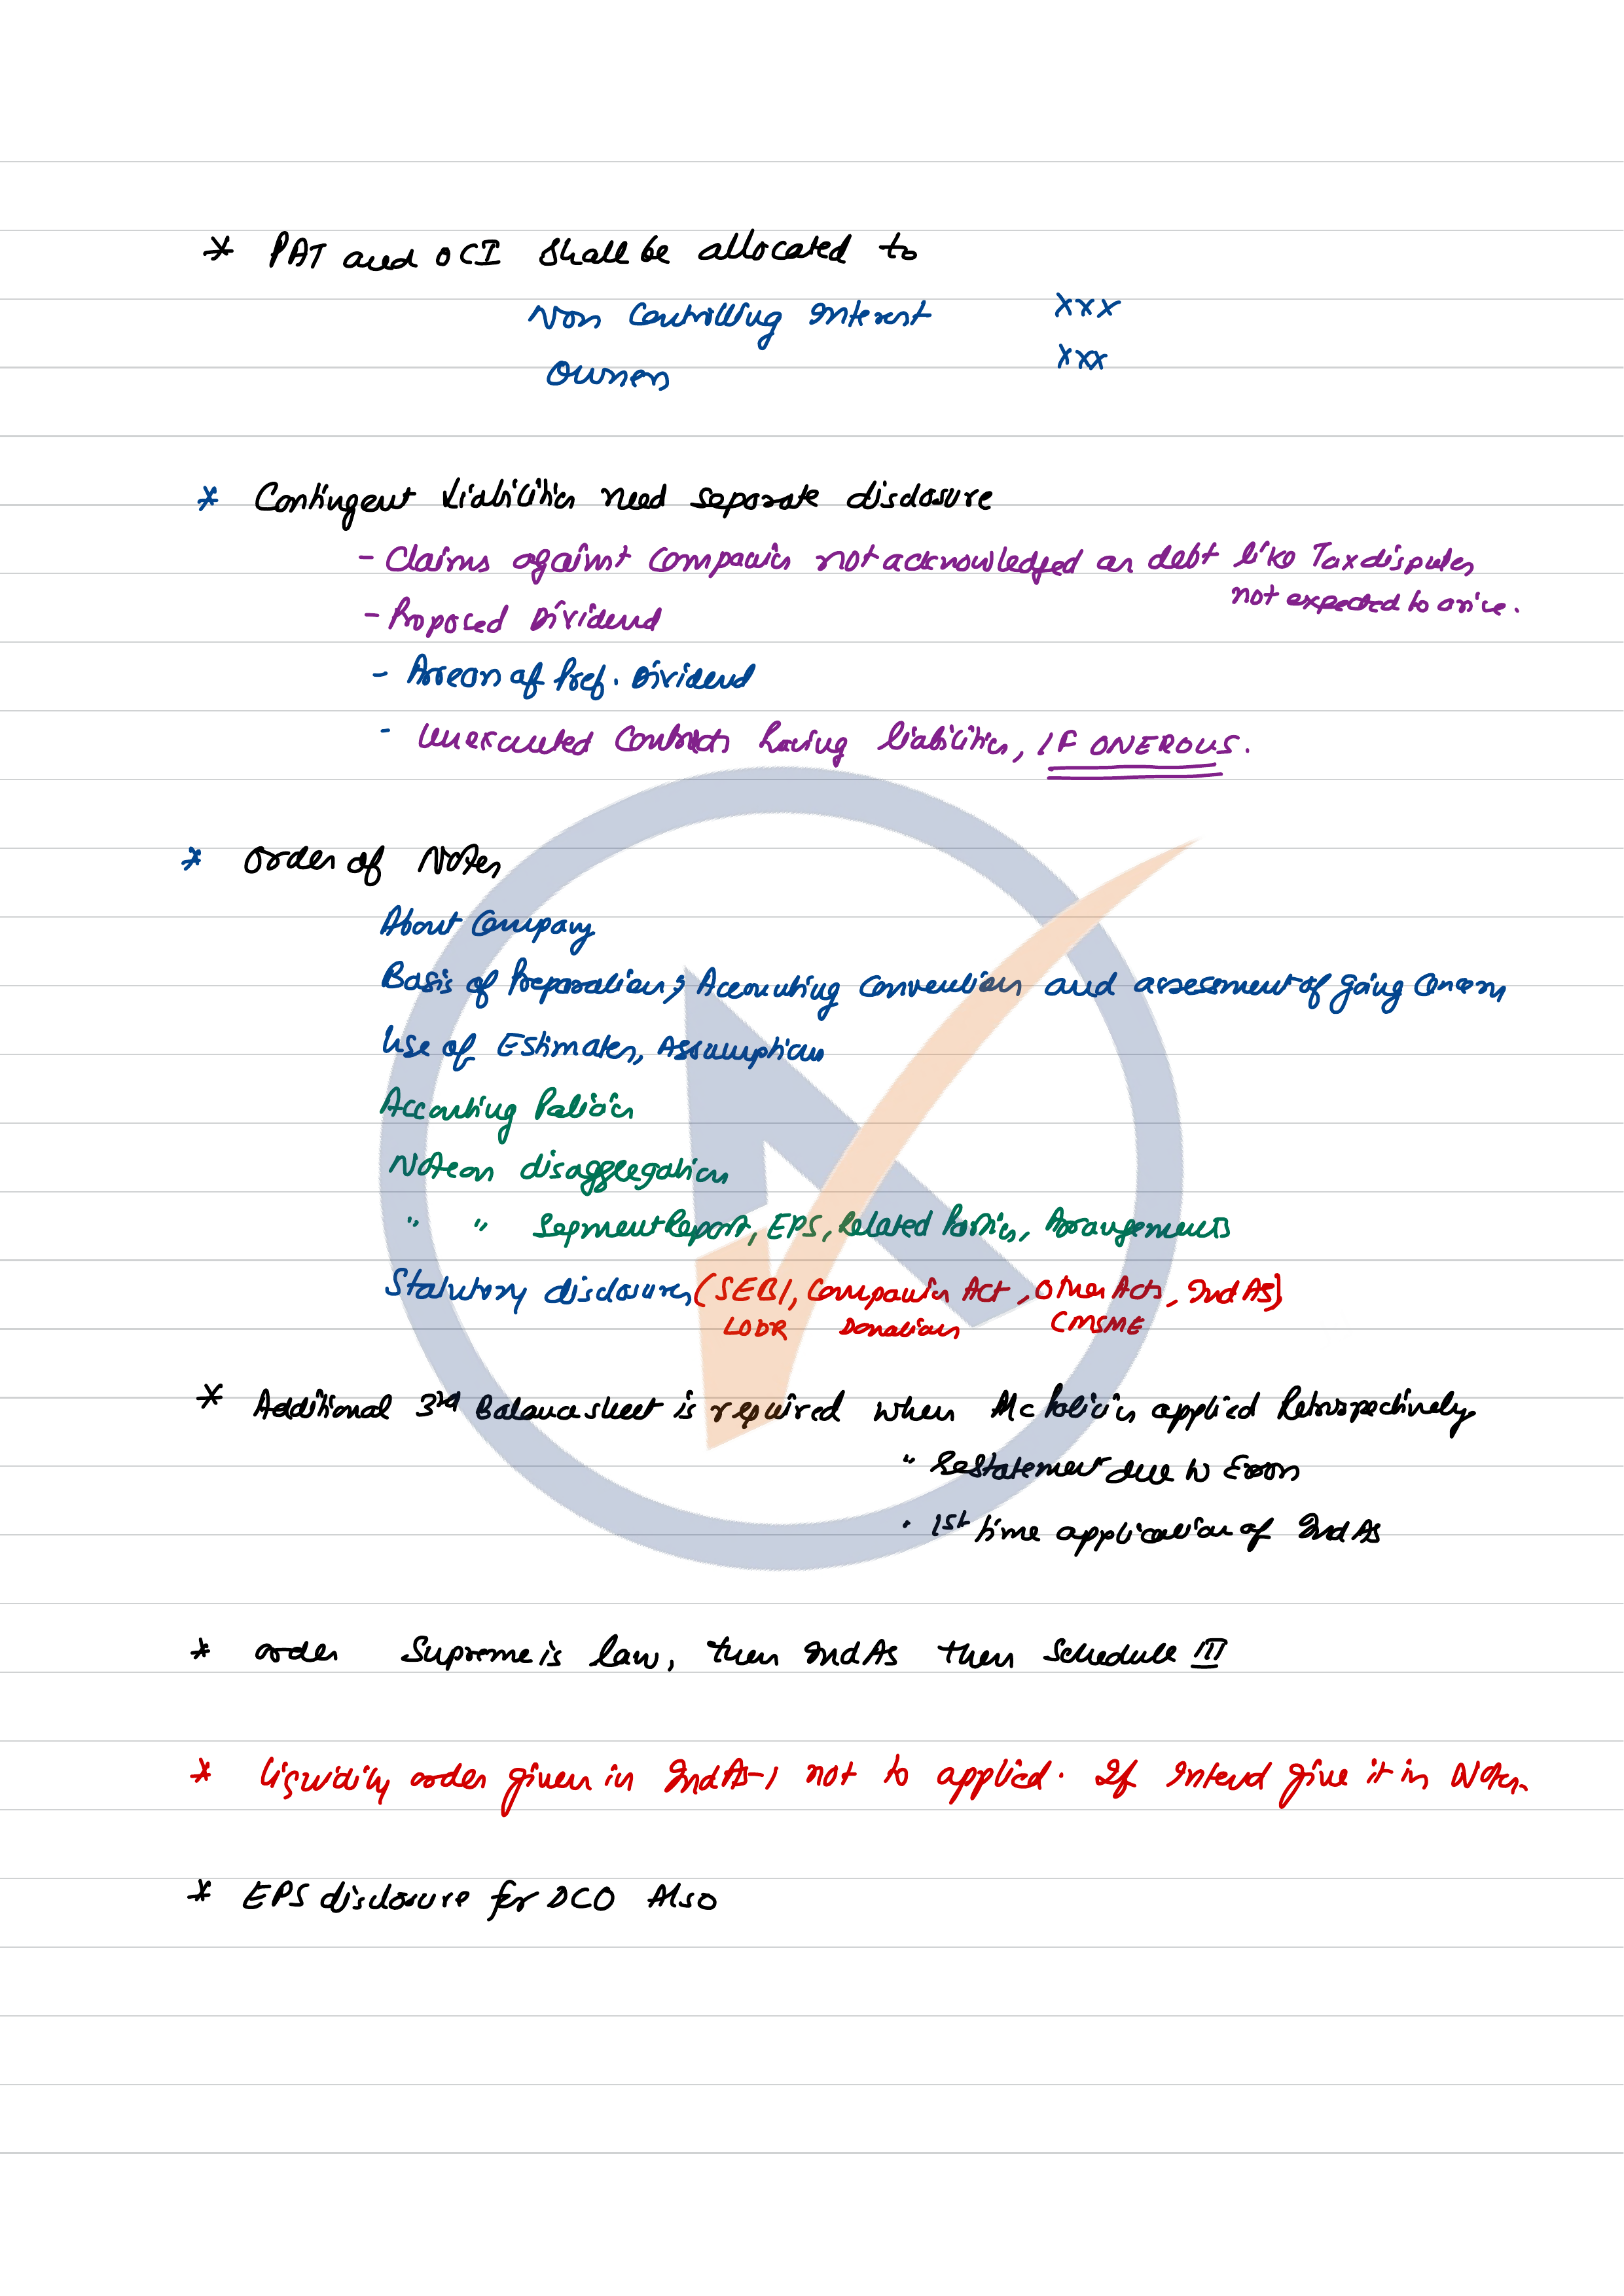 * PAT and OCI Shall be allocated to
Non Controlling Interest xxx
Owners xxx
* Contingent Liabilities need separate disclosure
- Claims against Companies not acknowledged as debt like Tax disputes
not expected to arise.
- Proposed Dividend
- Arrears of Pref. Dividend
- Unexecuted Contracts having liabilities, IF ONEROUS.
* Order of Notes
About Company
Basis of Preparation, Accounting Convention and assessment of going Concern
Use of Estimates, Assumptions
Accounting Policies
Note on disaggregation
" " Segment Report, EPS, Related Parties, Arrangements
Statutory disclosures (SEBI, Companies Act, Other Acts, Ind AS)
LODR Donations CMSME
* Additional 3rd Balance sheet is required when Ac Policies applied Retrospectively
" Restatement due to Errors
" 1st time application of Ind AS
* order Supreme is law, then Ind AS then Schedule III
* Liquidity order given in Ind AS-1 not to applied. If Intend give it in Notes.
* EPS disclosure for DCO Also